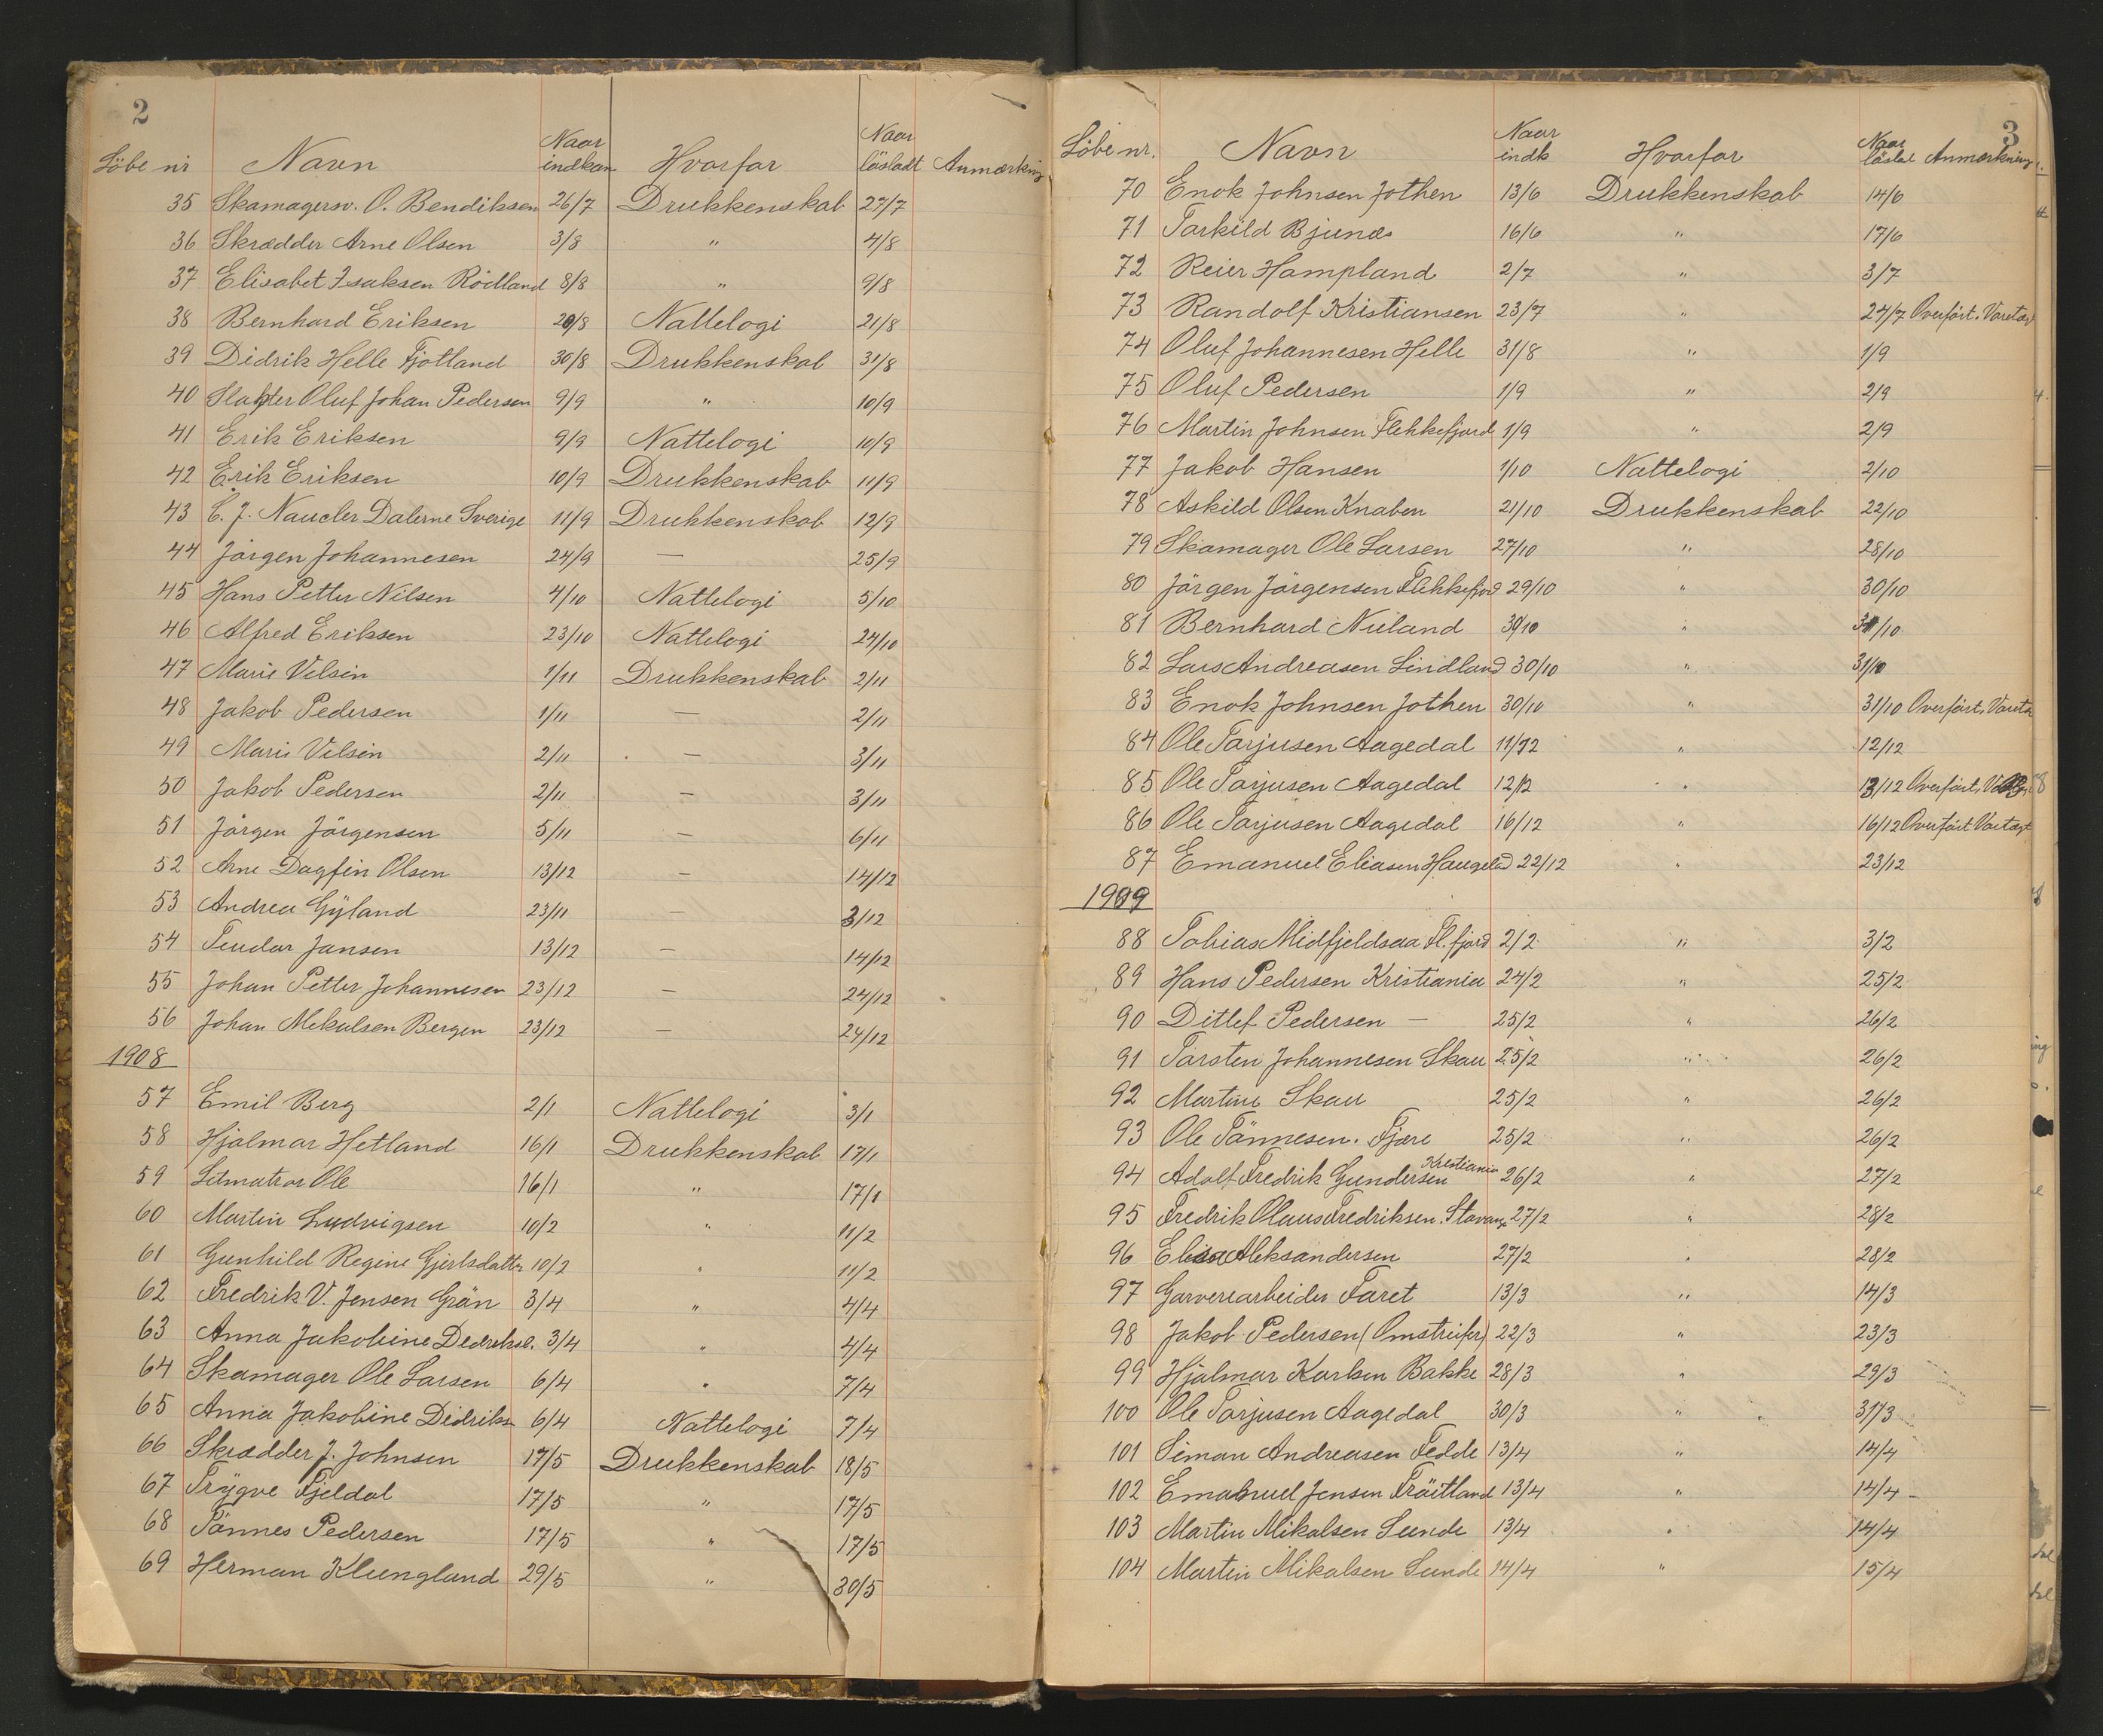 2
Löbe nr Navn Naar indkom Hvorfor Naar lösladt Anmærkning
35 Skomagersv. O. Bendiksen 26/7 Drukkenskab 27/7
36 Skrædder Arne Olsen 3/8 " 4/8
37 Elisabet Isaksen Röiland 8/8 " 9/8
38 Bernhard Eriksen 20/8 Nattelogi 21/8
39 Didrik Helle Fjotland 30/8 Drukkenskab 31/8
40 Slagter Oluf Johan Pedersen 9/9 " 10/9
41 Erik Eriksen 9/9 Nattelogi 10/9
42 Erik Eriksen 10/9 Drukkenskab 11/9
43 C. J. Naucler Dalerne Sverige 11/9 Drukkenskab 12/9
44 Jörgen Johannesen 24/9 — 25/9
45 Hans Petter Nilsen 4/10 Nattelogi 5/10
46 Alfred Eriksen 23/10 Nattelogi 24/10
47 Marie Velsin 1/11 Drukkenskab 2/11
48 Jakob Pedersen 1/11 — 2/11
49 Marie Velsin 2/11 — 3/11
50 Jakob Pedersen 2/11 — 3/11
51 Jörgen Jörgensen 5/11 — 6/11
52 Arne Dagfin Olsen 13/12 — 14/12
53 Andrea Gyland 23/11 — 3/12
54 Teudor Jansen 13/12 — 14/12
55 Johan Petter Johannesen 23/12 — 24/12
56 Johan Mekalsen Bergen 23/12 — 24/12
1908
57 Emil Berg 2/1 Nattelogi 3/1
58 Hjalmar Hetland 16/1 Drukkenskab 17/1
59 Litmatros Ole 16/1 " 17/1
60 Martin Ludvigsen 10/2 " 11/2
61 Gunhild Regine Gjertsdatter 10/2 " 11/2
62 Fredrik V. Jensen Grön 3/4 " 4/4
63 Anna Jakobine Dedreksl. 3/4 " 4/4
64 Skomager Ole Larsen 6/4 " 7/4
65 Anna Jakobine Didriks 6/4 Nattelogi 7/4
66 Skrædder J. Johnsen 17/5 Drukkenskab 18/5
67 Trygve Fjeldal 17/5 " 17/5
68 Tönnes Pedersen 17/5 " 17/5
69 Herman Klungland 29/5 " 30/5
3
Löbe nr. Navn Naar indk Hvorfor Naar löslat Anmærkning
70 Enok Johnsen Jothen 13/6 Drukkenskab 14/6
71 Torkild Bjunes 16/6 " 17/6
72 Reier Hompland 2/7 " 3/7
73 Randolf Kristiansen 23/7 " 24/7 Overfört. Varetæ
74 Oluf Johannesen Helle 31/8 " 1/9
75 Oluf Pedersen 1/9 " 2/9
76 Martin Johnsen Flekkefjord 1/9 " 2/9
77 Jakob Hansen 1/10 Nattelogi 2/10
78 Askild Olsen Knaben 21/10 Drukkenskab 22/10
79 Skomager Ole Larsen 27/10 " 28/10
80 Jörgen Jörgensen Flekkefjord 29/10 " 30/10
81 Bernhard Nuland 30/10 " 31/10
82 Lars Andreasen Lindland 30/10 " 31/10
83 Enok Johnsen Jothen 30/10 " 31/10 Overfört. Vareta
84 Ole Tarjusen Aagedal 11/12 " 12/12
85 Ole Tarjusen Aagedal 12/12 " 13/12 Overfört.
86 Ole Tarjusen Aagedal 16/12 " 16/12 Overfört Vartægt
87 Emanuel Eliasen Haugeland 22/12 " 23/12
1909
88 Tobias Midfjeldsaa Fl.fjord 2/2 " 3/2
89 Hans Pedersen Kristiania 24/2 " 25/2
90 Ditlef Pedersen — 25/2 " 26/2
91 Torsten Johannesen Skau 25/2 " 26/2
92 Martine Skau 25/2 " 26/2
93 Ole Tönnesen. Fjære 25/2 " 26/2
94 Adolf Fredrik Gundersen Kristiania 26/2 " 27/2
95 Fredrik Olaus Fredriksen. Stavang 27/2 " 28/2
96 Elisa Aleksandersen 27/2 " 28/2
97 Garverearbeider Faret 13/3 " 14/3
98 Jakob Pedersen (Omstreifer) 22/3 " 23/3
99 Hjalmar Karlsen Bakke 28/3 " 29/3
100 Ole Tarjusen Aagedal 30/3 " 31/3
101 Simon Andreasen Fedde 13/4 " 14/4
102 Emanuel Jensen Fröitland 13/4 " 14/4
103 Martin Mikalsen Sunde 13/4 " 14/4
104 Martin Mikalsen Sunde 14/4 " 15/4